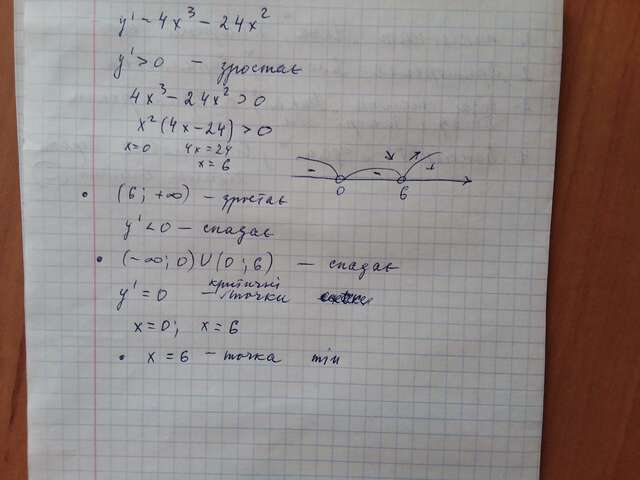 y' = 4x³ - 24x²
y' > 0 - зростає
4x³ - 24x² > 0
x²(4x - 24) > 0
x=0 4x=24
x=6
- - +
0 6
• (6; +∞) - зростає
y' < 0 - спадає
• (-∞; 0) U (0; 6) - спадає
критичні
y' = 0 - точки
x=0; x=6
• x = 6 - точка min